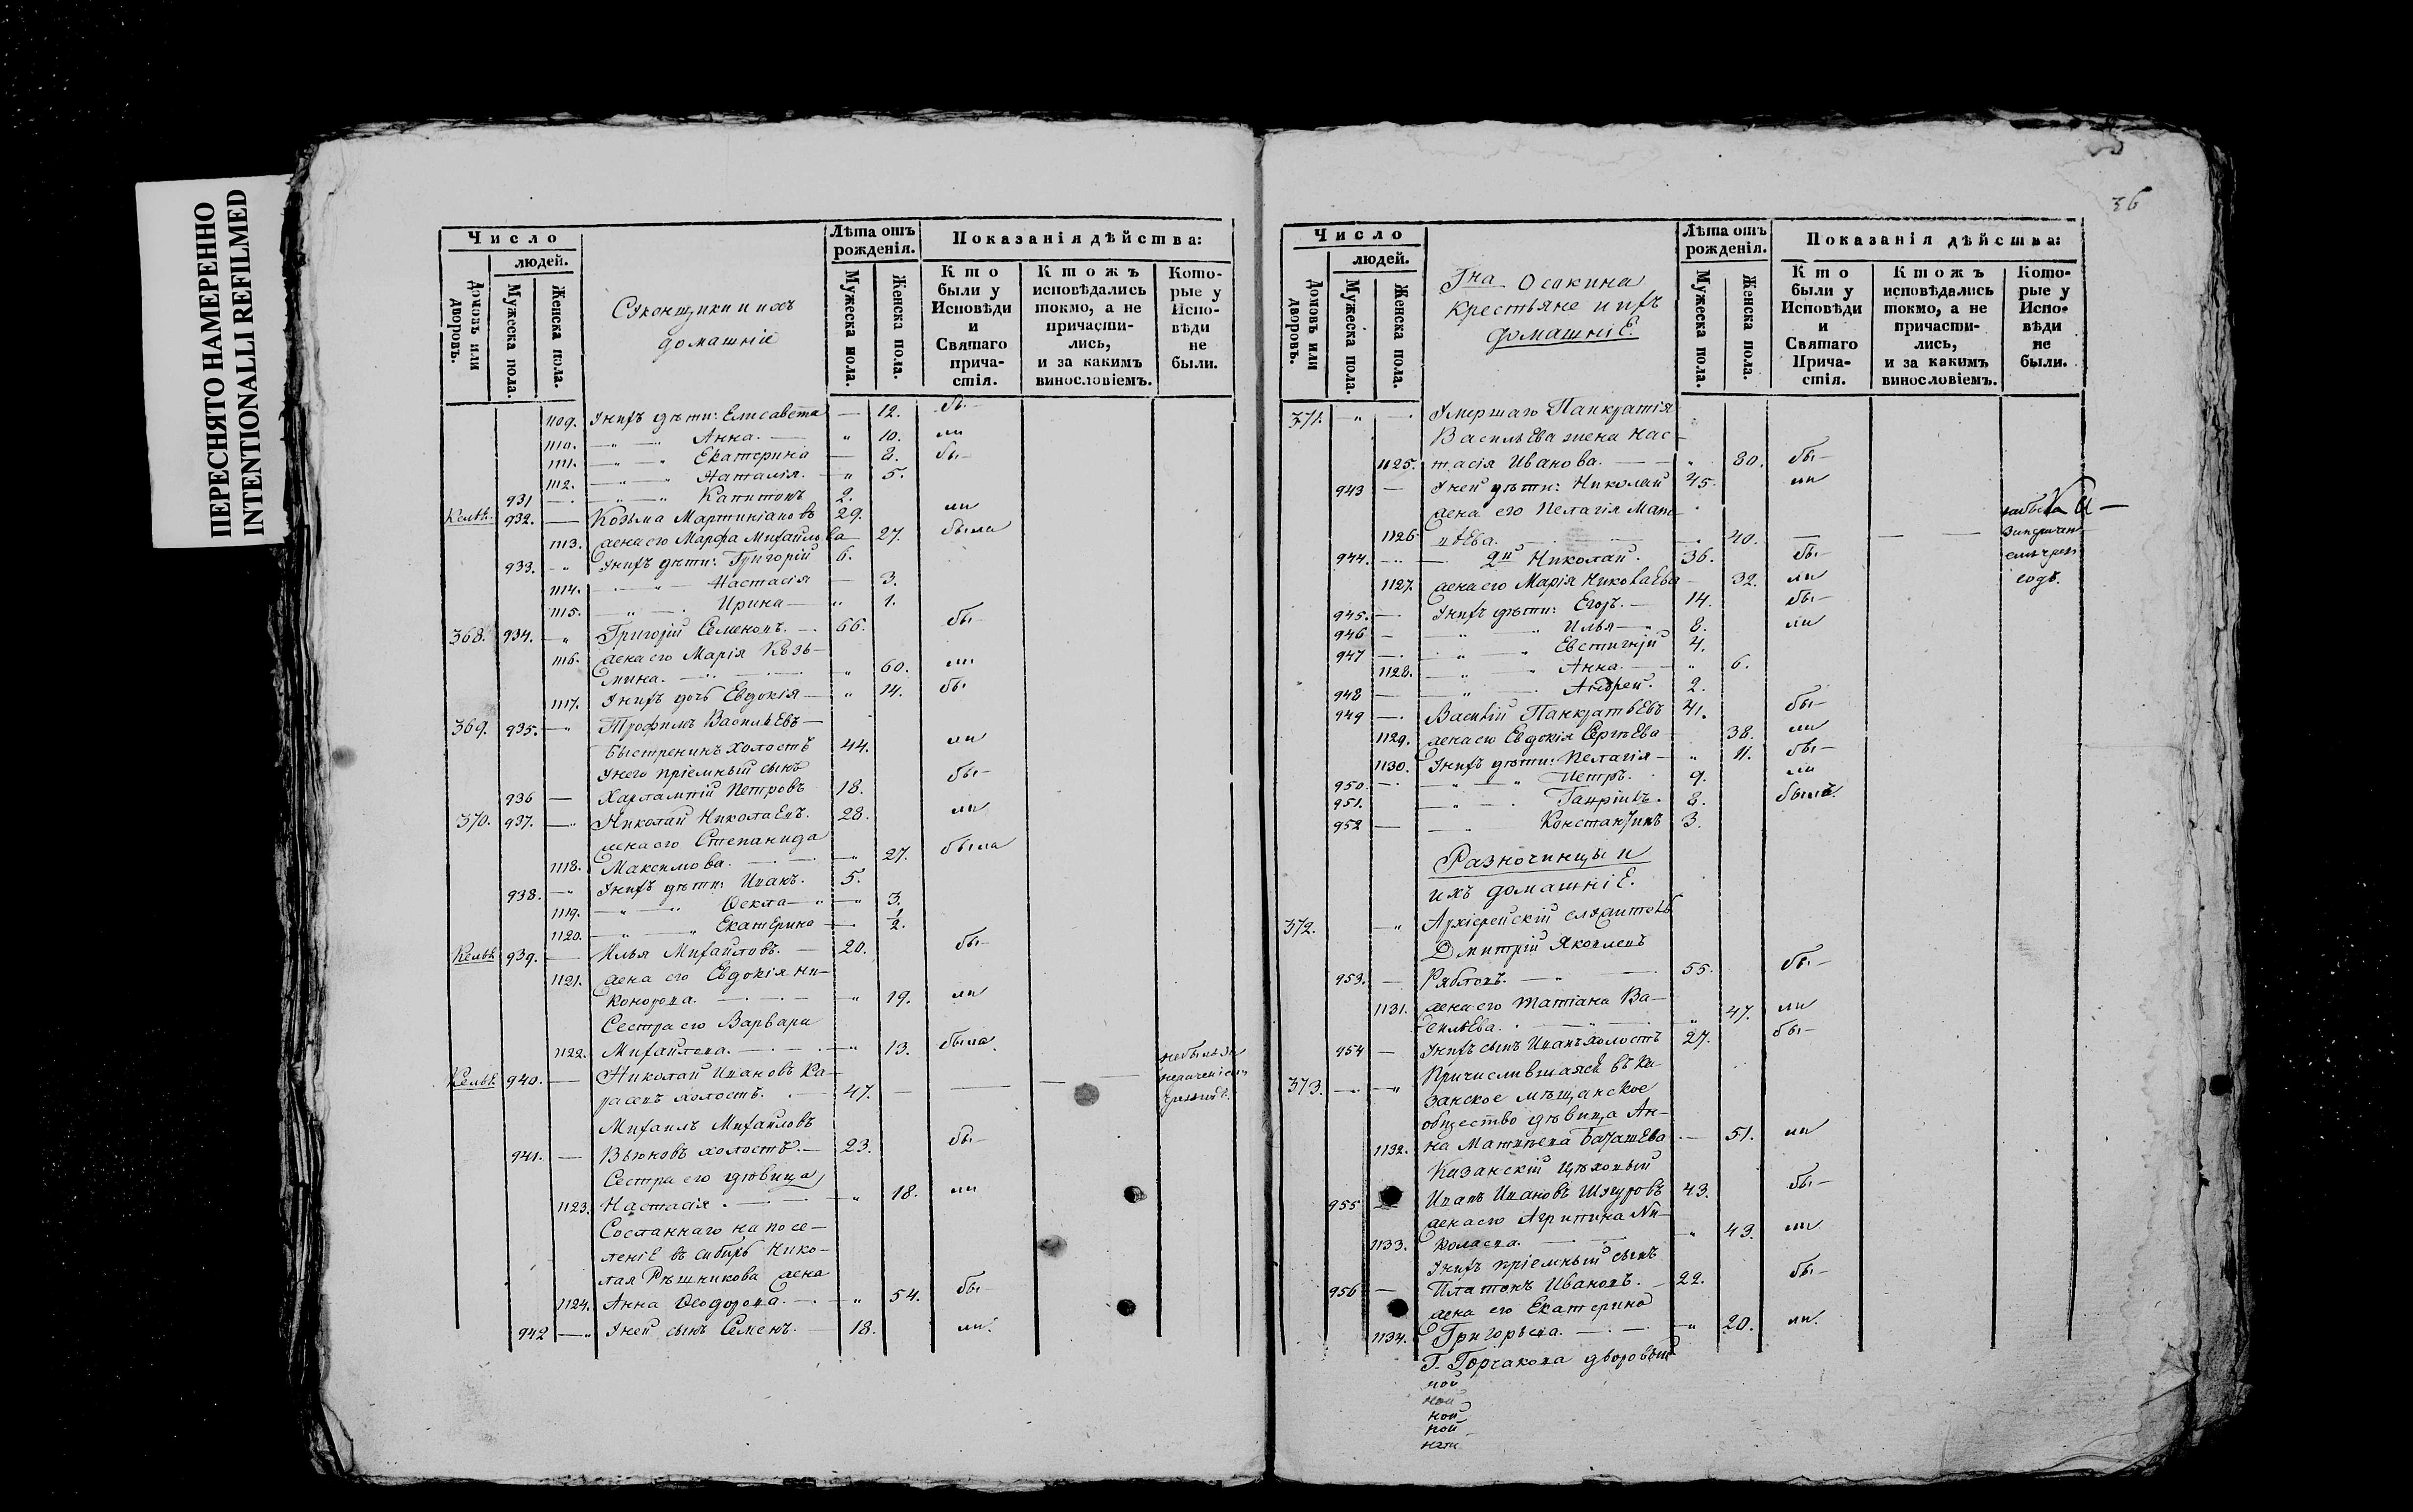 ПЕРЕСНЯТО НАМЕРЕННО
INTENTIONALLI REFILMED
Число
людей.
Домовъ или дворовъ.
Мужеска пола.
Женска пола.
Суконщики и ихъ
домашніе
Лѣта отъ рожденія.
Мужеска пола.
Женска пола.
Показанія дѣйства:
Кто были у Исповѣди и Святаго причастія.
Ктожъ исповѣдались токмо, а не причастились, и за какимъ винословіемъ.
Которые у Исповѣди не были.
1109. У нихъ дѣти: Елисавета — 12. бы—
1110. —„— Анна. — „ 10. ли
1111. —„— Екатерина — 8. бы—
1112. —„— Наталія. — „ 5.
931 — —„— Капитонъ 2.
932. — Козьма Мартиніановъ 29. ли
1113. жена его Марфа Михайлова 27. была
933. —„ У нихъ дѣти: Григорій 6.
1114. —„— Настасія — 3.
1115. —„— Ирина — „ 1.
368. 934. —„ Григорій Семеновъ. — 66. бы—
1116. жена его Марія Козь—
мина. — „ 60. ли
1117. У нихъ дочь Евдокія — „ 14. бы
369. 935. —„ Трофимъ Васильевъ —
Быстренинъ холостъ 44. ли
У него пріемный сынъ
936 — Харлампій Петровъ 18. бы—
370. 937. —„ Николай Николаевъ. 28. ли
жена его Степанида
1118. Максимова. — — 27. была
938. —„ У нихъ дѣти: Иванъ. 5.
1119. —„— Ѳекла — „ 3.
1120. —„— Екатерина — 1/2.
939. — Илья Михайловъ. — 20. бы—
1121. жена его Евдокія Ни—
конорова. — „ 19. ли
Сестра его Варвара
1122. Михайлова. — „ 13. была.
940. — Николай Ивановъ Ка—
расевъ холостъ. — 47. —
Михаилъ Михайловъ
941. — Вьюновъ холостъ. — 23. бы—
Сестра его дѣвица
1123. Настасія. — „ 18. ли
Сосланнаго на посе—
леніе въ Сибирь Нико—
лая Рѣшникова жена
1124. Анна Ѳеодорова. — „ 54. бы
942 —„ У ней сынъ Семенъ. 18. ли.
36
Число
людей.
Домовъ или дворовъ.
Мужеска пола.
Женска пола.
Гна Осокина
Крестьяне и ихъ
домашніе.
Лѣта отъ рожденія.
Мужеска пола.
Женска пола.
Показанія дѣйства:
Кто были у Исповѣди и Святаго Причастія.
Ктожъ исповѣдались токмо, а не причастились, и за какимъ винословіемъ.
Которые у Исповѣди не были.
371. „ — Умершаго Панкратія
Васильева жена Нас—
1125. тасія Иванова. — „ 80. бы—
943 — У ней дѣти: Николай 45. ли
жена его Пелагія Мат—
1126 вѣева. — 40. — — —
944. — 2й Николай. 36. бы—
1127. жена его Марія Николаева — 32. ли
945. — У нихъ дѣти: Егоръ. — 14. бы—
946 — „ „ Илья — 8. ли
947 — „ „ Евстигнѣй 4.
1128. —„ „ Анна. — „ 6.
948 — —„— Андрей. 2.
949 — Василій Панкратьевъ 41. бы—
1129. жена его Евдокія Сергѣева 38. ли
1130. У нихъ дѣти: Пелагія — „ 11. бы—
950. — —„— Петръ. 9. ли
951. —„— Гавріилъ. 8. былъ.
952 — —„ Константинъ 3.
Разночинцы и
ихъ домашніе.
372. —„ Архіерейскій служитель
Дмитрій Яковлевъ
953. — Рябловъ. — 55. бы—
1131. жена его Татіана Ва—
сильева. — „ 47. ли
954 — У нихъ сынъ Иванъ холостъ 27. бы—
373. — „ Причислившаяся въ Ка—
занское мѣщанское
общество дѣвица Ан—
1132. на Матвѣева — 51. ли
Казанскій цѣховый
955 — Иванъ Ивановъ 43. бы—
жена его Агрипина Ни—
1133. колаева. — „ 43. ли
У нихъ пріемный сынъ
956 — Платонъ Ивановъ. — 22. бы—
жена его Екатерина
1134. Григорьева. — „ 20. ли.
Г. Горчакова дворовый
ной
ной
ной
ной